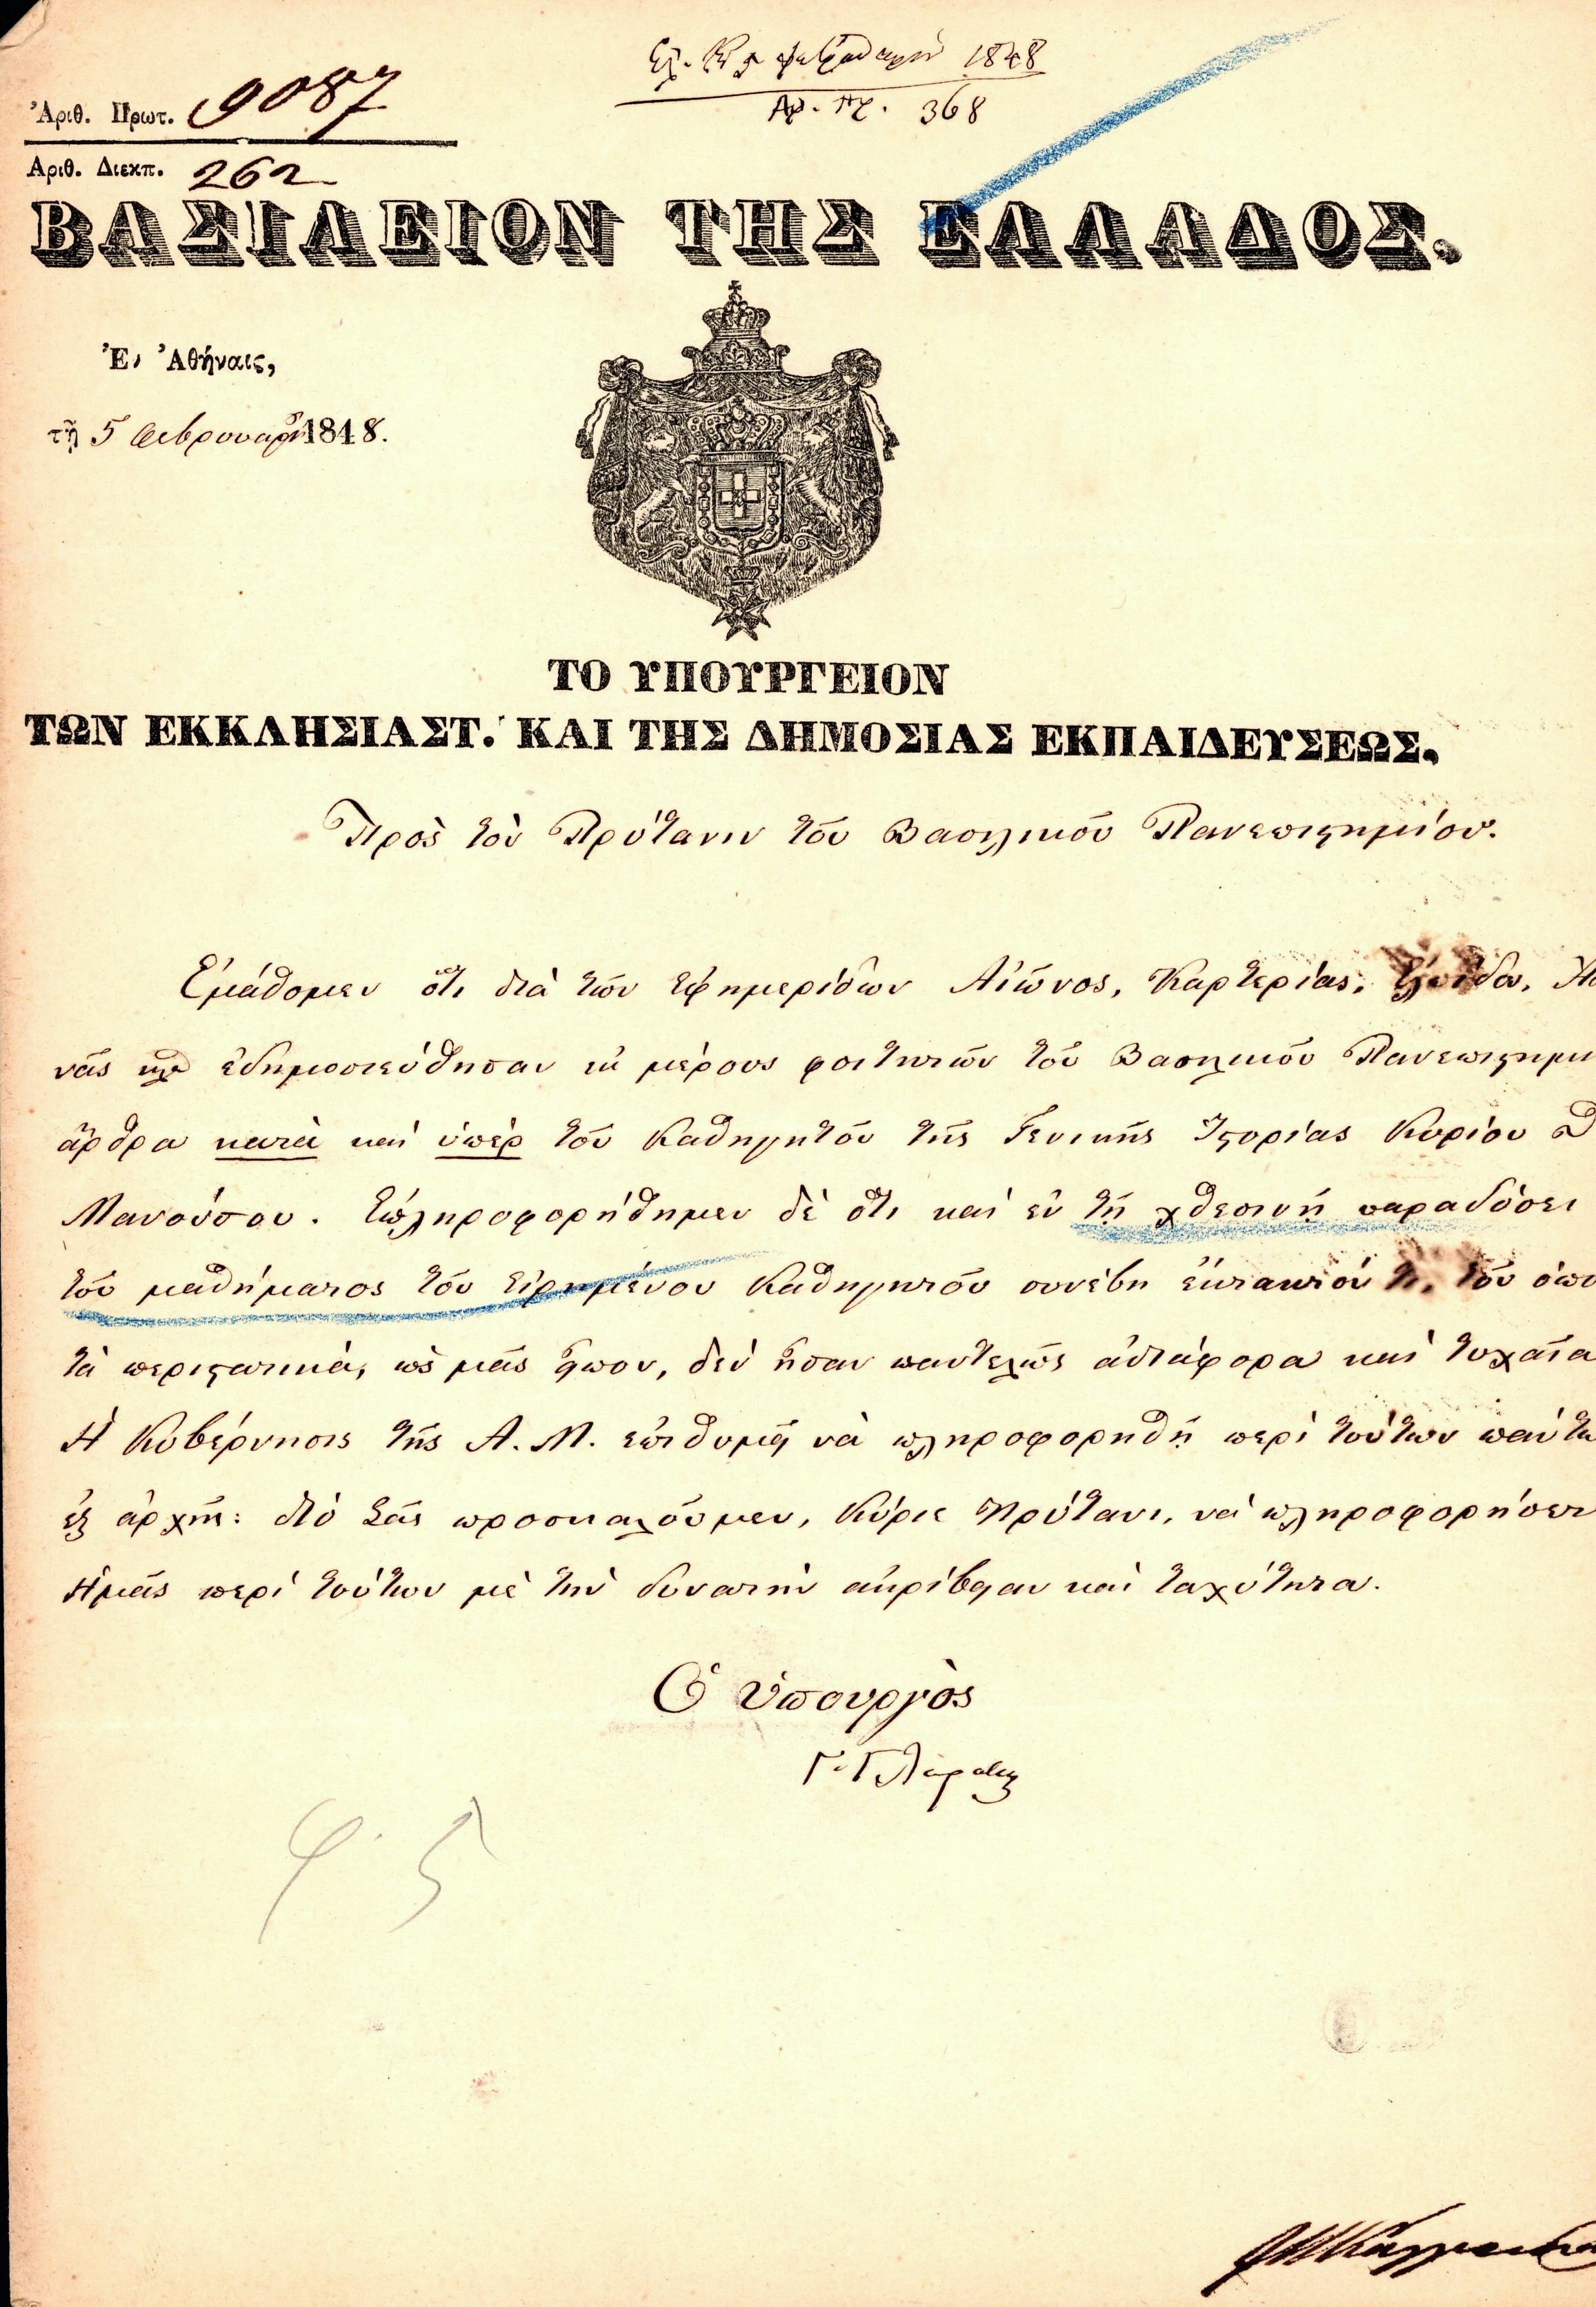 Ἀριθ. Πρωτ. 9087
Ἀριθ. Διεκπ. 262
1848
Ἀρ. Πρ. 368
ΒΑΣΙΛΕΙΟΝ ΤΗΣ ΕΛΛΑΔΟΣ.
Ἐν Ἀθήναις,
τῇ 5 Φεβρουαρίου 1848.
ΤΟ ΥΠΟΥΡΓΕΙΟΝ
ΤΩΝ ΕΚΚΛΗΣΙΑΣΤ. ΚΑΙ ΤΗΣ ΔΗΜΟΣΙΑΣ ΕΚΠΑΙΔΕΥΣΕΩΣ.
Πρὸς τὸν Πρύτανιν τοῦ Βασιλικοῦ Πανεπιστημίου.
Ἐμάθομεν ὅτι διὰ τῶν ἐφημερίδων Αἰῶνος, Καρτερίας, Ἐλπίδος, Ἀθη
νᾶς κλπ ἐδημοσιεύθησαν ἐκ μέρους φοιτητῶν τοῦ Βασιλικοῦ Πανεπιστημί
ἄρθρα κατὰ καὶ ὑπὲρ τοῦ Καθηγητοῦ τῆς Γενικῆς Ἱστορίας Κυρίου Θ
Μανούσου. Ἐπληροφορήθημεν δὲ ὅτι καὶ ἐν τῇ χθεσινῇ παραδόσει
τοῦ μαθήματος τοῦ εἰρημένου Καθηγητοῦ συνέβη ἔκτακτόν τι, τοῦ ὁποί
τὰ περιστατικὰ, ὡς μᾶς εἶπον, δὲν ἦσαν παντελῶς ἀδιάφορα καὶ τυχαῖα
Ἡ Κυβέρνησις τῆς Α. Μ. ἐπιθυμεῖ νὰ πληροφορηθῇ περὶ τούτων πάντω
ἐξ ἀρχῆς: διὸ Σᾶς προσκαλοῦμεν, Κύριε Πρύτανι, νὰ πληροφορήσητ
Ἡμᾶς περὶ τούτων μὲ τὴν δυνατὴν ἀκρίβειαν καὶ ταχύτητα.
Ὁ ὑπουργὸς
Γ. Γλαράκης
φ. 5